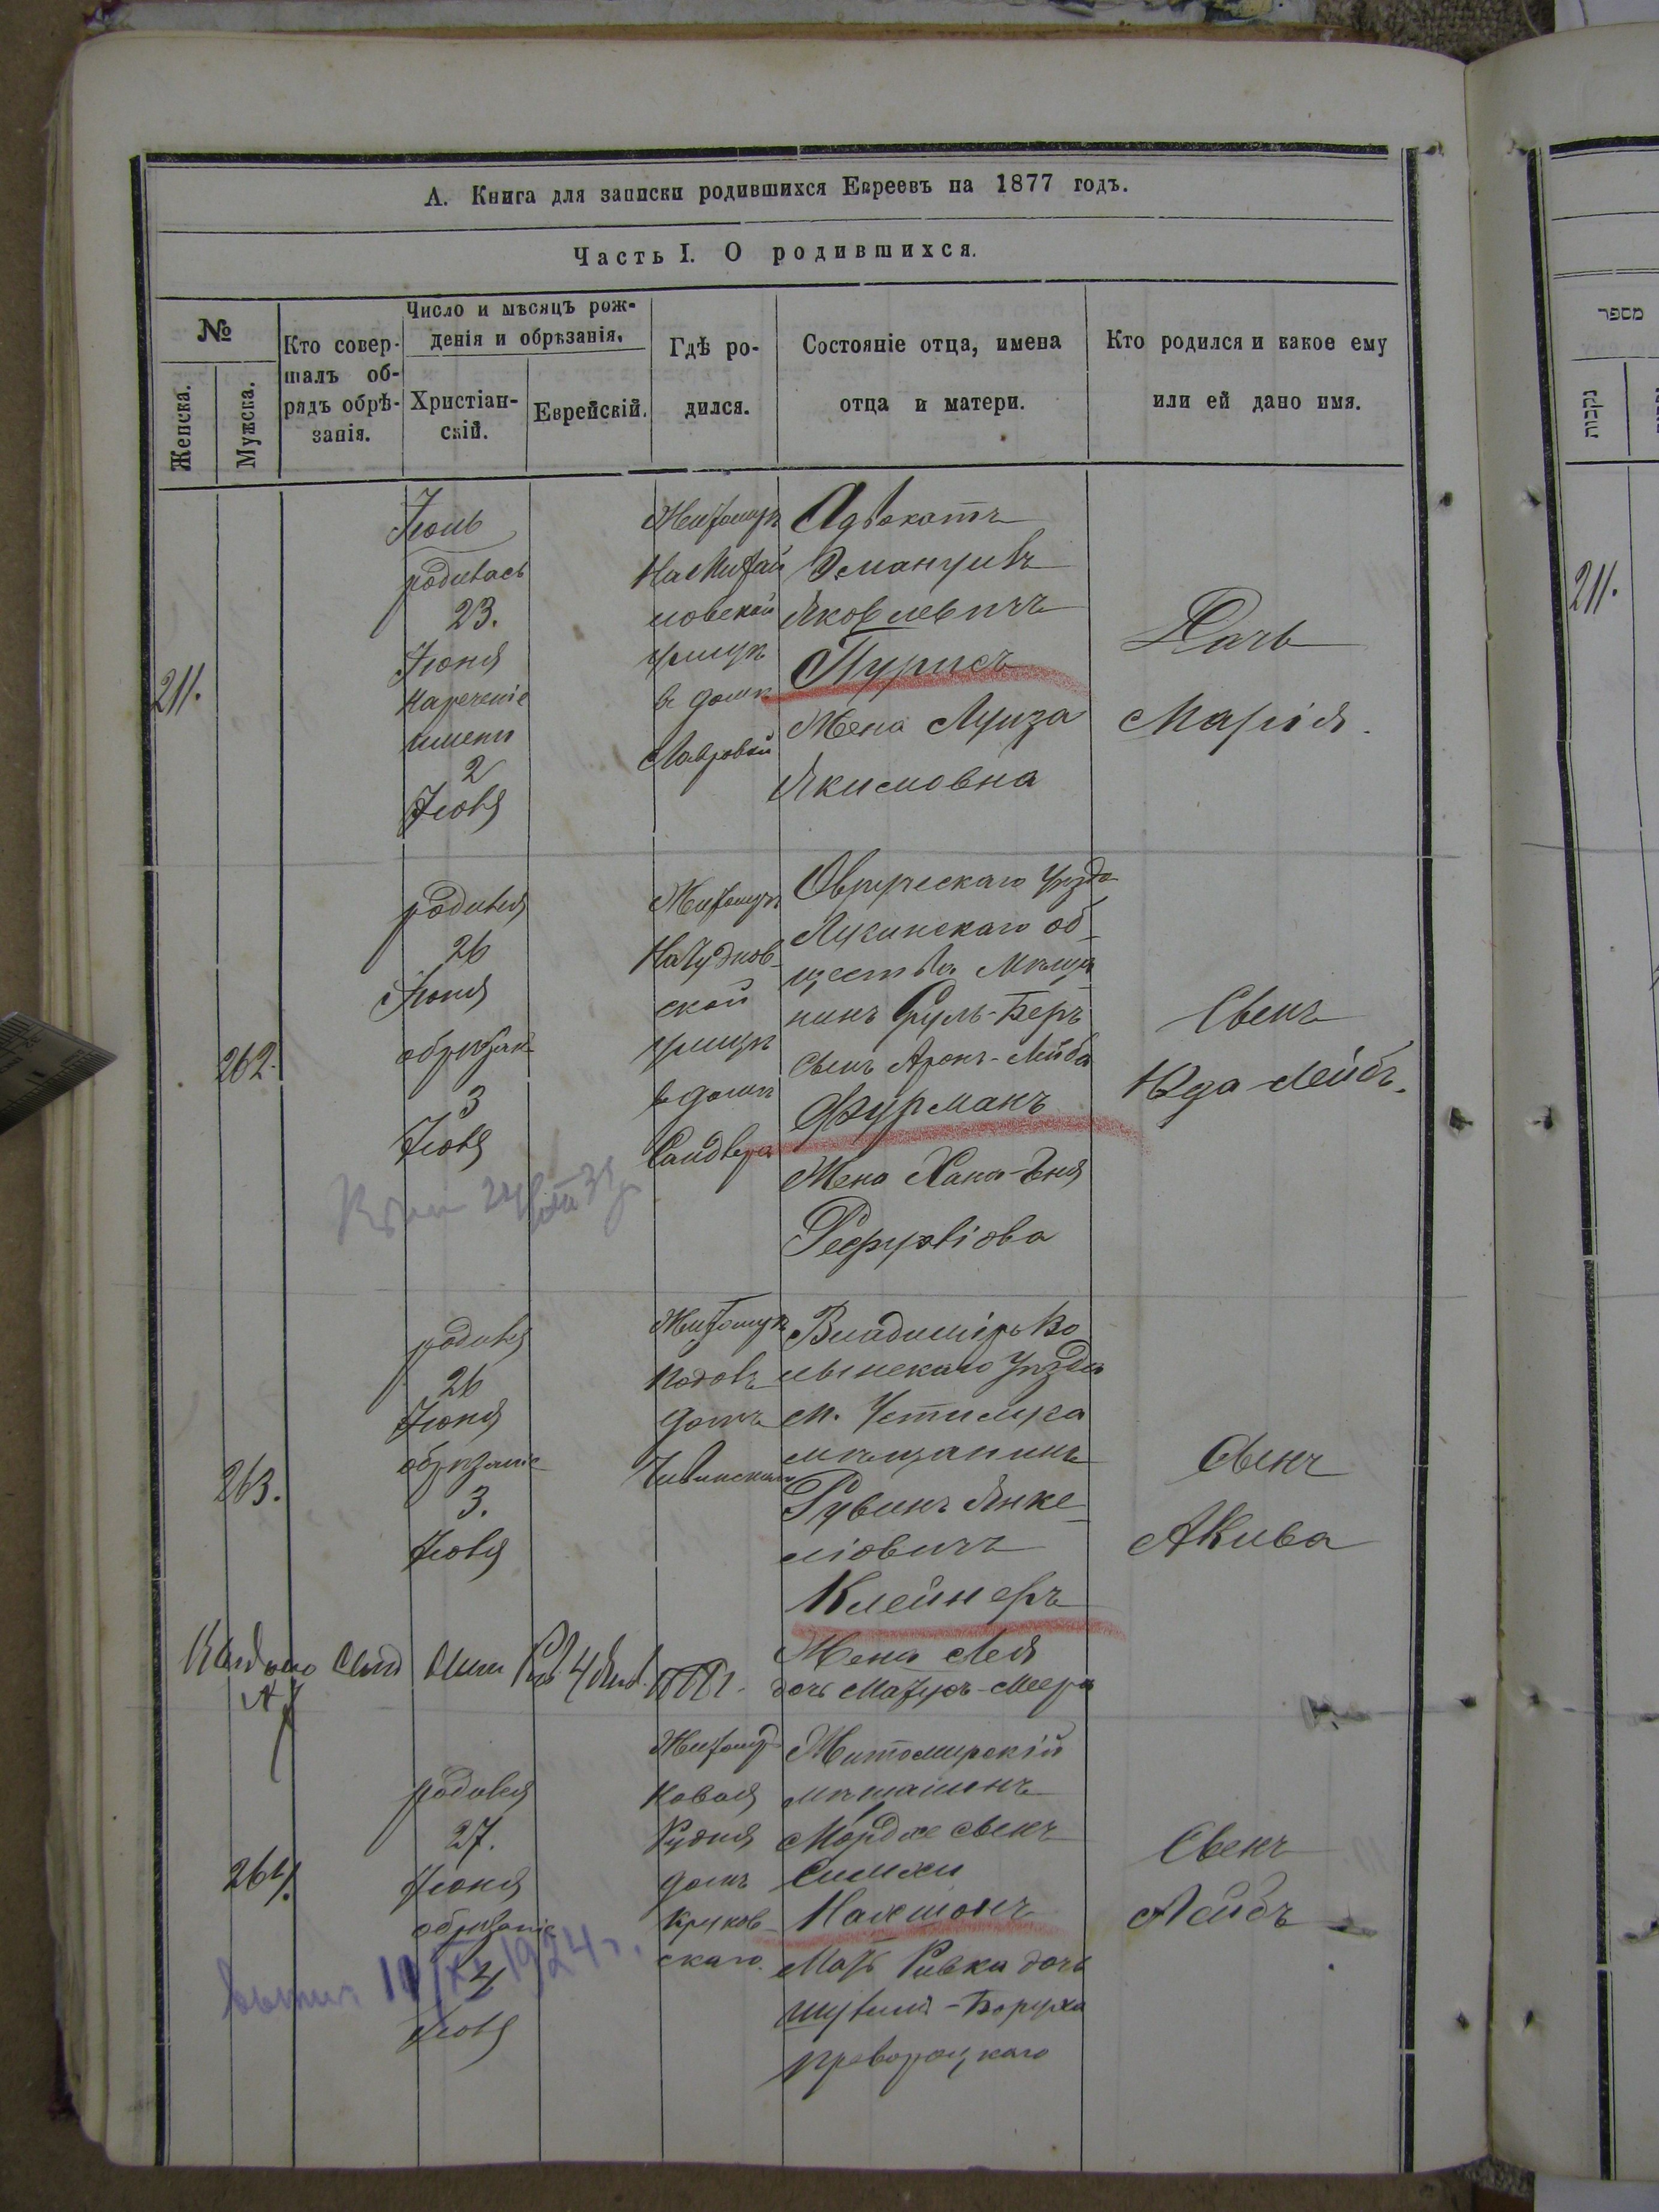 А. Книга для записки родившихся Евреевъ на 1877 годъ.
Часть I. О родившихся.
№
Женска.
Мужска.
Кто совер-
шалъ об-
рядъ обрѣ-
занія.
Число и мѣсяцъ рож-
денія и обрѣзанія.
Христіан-
скій.
Еврейскій.
Гдѣ ро-
дился.
Состояніе отца, имена
отца и матери.
Кто родился и какое ему
или ей дано имя.
211.
Іюль
родилась
23.
Іюня
нареченіе
имени
2
Іюля
Житомиръ
На Михай
ловской
улицѣ
в домѣ
Адвокатъ
Эмануилъ
Яковлевичъ
Пурисъ
Жена Луиза
Якимовна
Дочь
Марія.
262.
родился
26
Іюня
обрѣзан
3
Іюля
Житомиръ
На Чуднов-
ской
улицѣ
в домѣ
Овручскаго уѣзда
Лугинскаго об-
щества Мѣща
нинъ Сруль-Беръ
сынъ Аронъ-Лейба
Фурманъ
Жена Хана-Эня
Сынъ
Юда-Лейбъ.
263.
родился
26
Іюня
обрѣзаніе
3.
Іюля
Житомиръ
домъ
Владиміръ Во
лынскаго Уѣзда
м. Устилуга
мѣщанинъ
Рувинъ Янке-
ліовичъ
Клейнеръ
Жена Лея
дочь Матусъ-Меера
Сынъ
Акива
264.
родился
27.
Іюня
обрѣзаніе
4
Іюля
Житомиръ
Новая
Рудня
домъ
Круков-
скаго.
Житомирскій
мѣщанинъ
Мордхе сынъ
Симхи
Нахшонъ
Мать Ривка дочь
Шулима-Боруха
Сынъ
Лейбъ
1924 г.
מספר
נקבות
211.